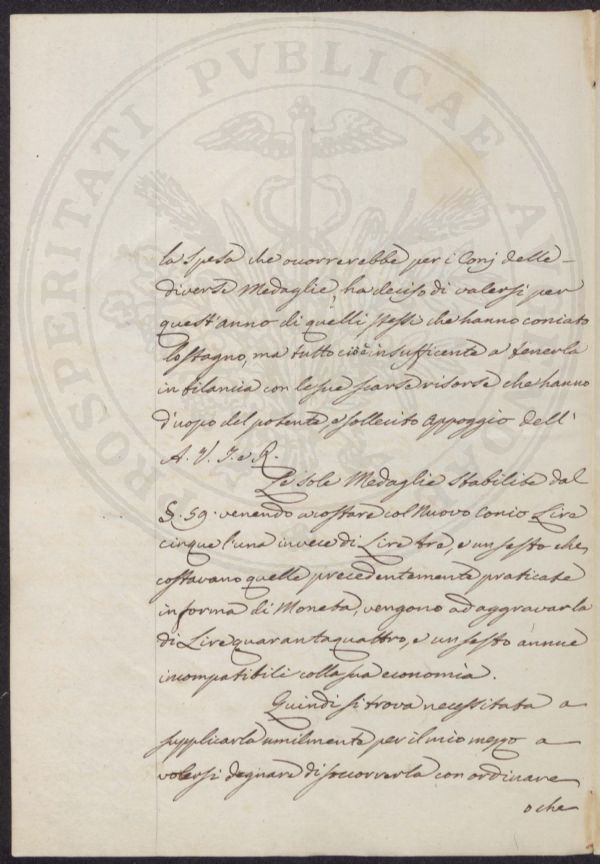 PROSPERITATI PVBLICAE AV
la spesa che ocorrerebbe per i Conj delle
diverse Medaglie, ha deciso di valersi per
quest'anno di quelli stessi che hanno coniato
lo stagno, ma tutto ciò è insufficente a tenerla
in bilancia con le sue scarse risorse che hanno
d'uopo del potente, e sollecito appoggio dell'
A. V. I. e R.
Le sole Medaglie stabilite dal
§. 59. venendo a costare col Nuovo Conio Lire
cinque l'una invece di Lire tre, e un sesto che
costavano quelle precedentemente praticate
in forma di Moneta, vengono ad aggravarla
di Lire quarantaquattro, e un sesto annue
incompatibili colla sua economia.
Quindi si trova necessitata a
supplicarla umilmente per il mio mezzo a
volersi degnare di soccorrerla con ordinare
o che